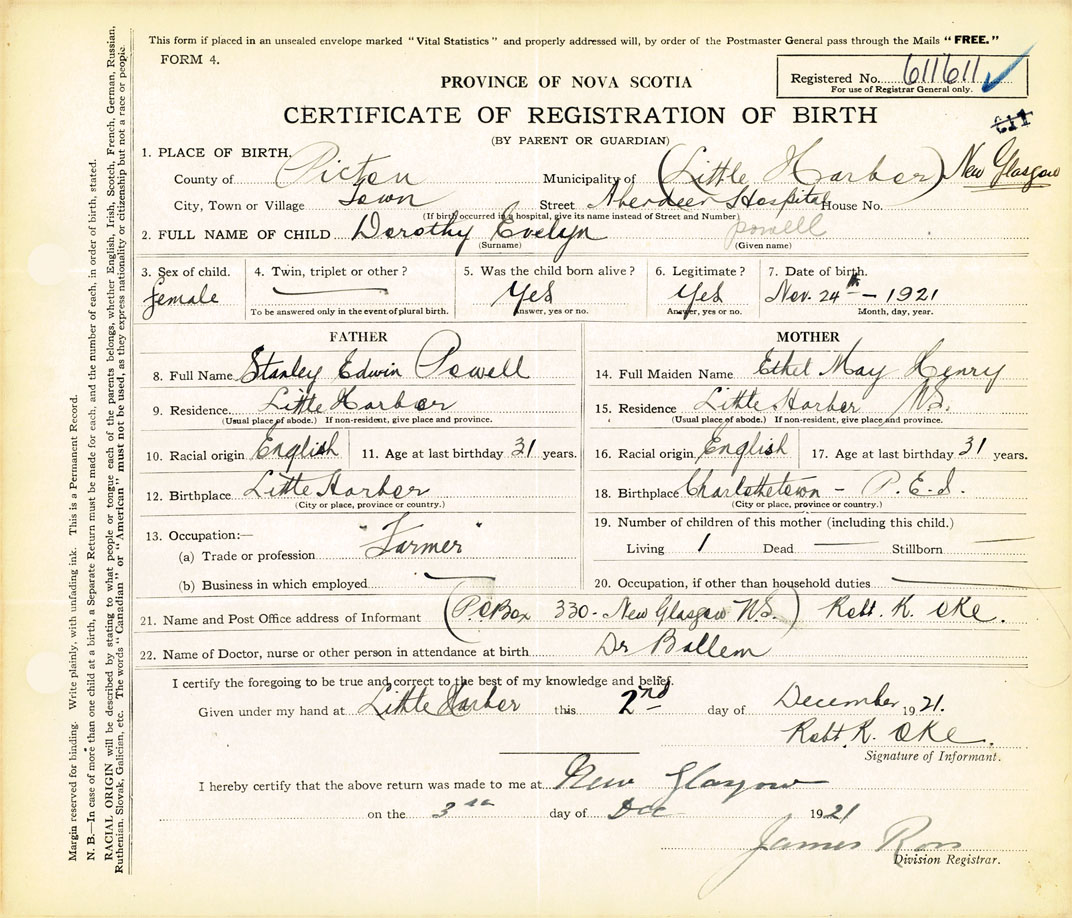 This form if placed in an unsealed envelope marked "Vital Statistics" and properly addressed will, by order of the Postmaster General pass through the Mails "FREE."
FORM 4.
Registered No. 611611
For use of Registrar General only.
PROVINCE OF NOVA SCOTIA
CERTIFICATE OF REGISTRATION OF BIRTH
611
(BY PARENT OR GUARDIAN)
1. PLACE OF BIRTH.
County of Pictou Municipality of (Little Harbor) New Glasgow
City, Town or Village Town Street Aberdeen Hospital House No.
(If birth occurred in a hospital, give its name instead of Street and Number)
2. FULL NAME OF CHILD Dorothy Evelyn powell
(Surname) (Given name)
3. Sex of child. 4. Twin, triplet or other? 5. Was the child born alive? 6. Legitimate? 7. Date of birth.
female Yes Yes Nov. 24th – 1921
To be answered only in the event of plural birth. Answer, yes or no. Answer, yes or no. Month, day, year.
FATHER MOTHER
8. Full Name Stanley Edwin Powell 14. Full Maiden Name Ethel May Henry
9. Residence Little Harbor 15. Residence Little Harbor N.S.
(Usual place of abode.) If non-resident, give place and province. (Usual place of abode.) If non-resident, give place and province.
10. Racial origin English 11. Age at last birthday 31 years. 16. Racial origin English 17. Age at last birthday 31 years.
12. Birthplace Little Harbor 18. Birthplace Charlottetown – P.E.I.
(City or place, province or country.) (City or place, province or country.)
13. Occupation:— 19. Number of children of this mother (including this child.)
(a) Trade or profession "Farmer" Living 1 Dead — Stillborn —
(b) Business in which employed — 20. Occupation, if other than household duties —
21. Name and Post Office address of Informant (P.O Box 330 - New Glasgow N.S.) Robt. K. OKe.
22. Name of Doctor, nurse or other person in attendance at birth Dr Ballem
I certify the foregoing to be true and correct to the best of my knowledge and belief.
Given under my hand at Little Harbor this 2nd day of December 1921.
Robt. K. OKe.
Signature of Informant.
I hereby certify that the above return was made to me at New Glasgow
on the 3rd day of Dec 1921
James Ross
Division Registrar.
Margin reserved for binding. Write plainly, with unfading ink. This is a Permanent Record.
N. B.—In case of more than one child at a birth, a Separate Return must be made for each, and the number of each, in order of birth, stated.
RACIAL ORIGIN will be described by stating to what people or tongue each of the parents belongs, whether English, Irish, Scotch, French, German, Russian,
Ruthenian, Slovak, Galician, etc. The words "Canadian" or "American" must not be used, as they express nationality or citizenship but not a race or people.